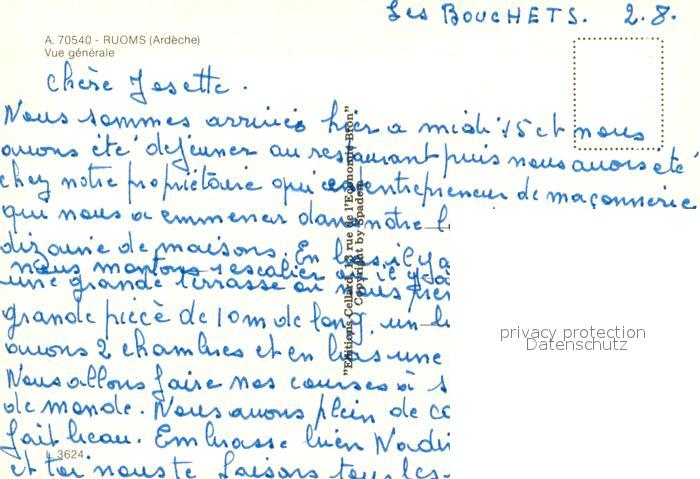 Les BOUCHETS. 2.8.
A. 70540 - RUOMS (Ardèche)
Vue générale
Chère Josette.
Nous sommes arrivés hier a midi 15 et nous
avons été déjeuner au restaurant puis nous avons été
chez notre propriétaire qui est entrepreneur de maçonnerie
qui nous a emmener dans notre
dizaine de maisons. En bas il y a
nous montons 1 escalier où il y a
une grande terrasse où nous
grande pièce de 10m de long, un
avons 2 chambres et en bas une
Nous allons faire nos courses à
de monde. Nous avons plein de
fait beau. Embrasse bien
et toi nous te faisons tous les
L 3624
"Editions Cellard, 13 rue de l'Economie Bron"
Copyright by Spadem
privacy protection
Datenschutz